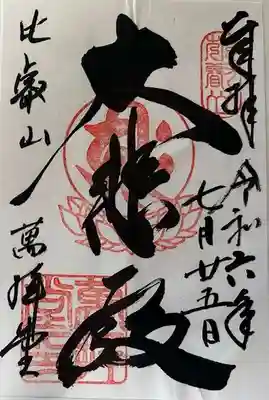 奉拝
令和六年
七月廿五日
大悲殿
比叡山
萬拝堂